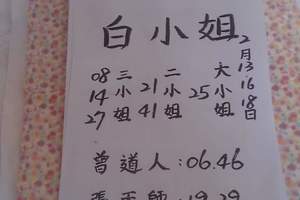 白小姐
2月13.16.18日
大小姐
25
二小姐
21
41
三小姐
08
14
27
曾道人:06.46